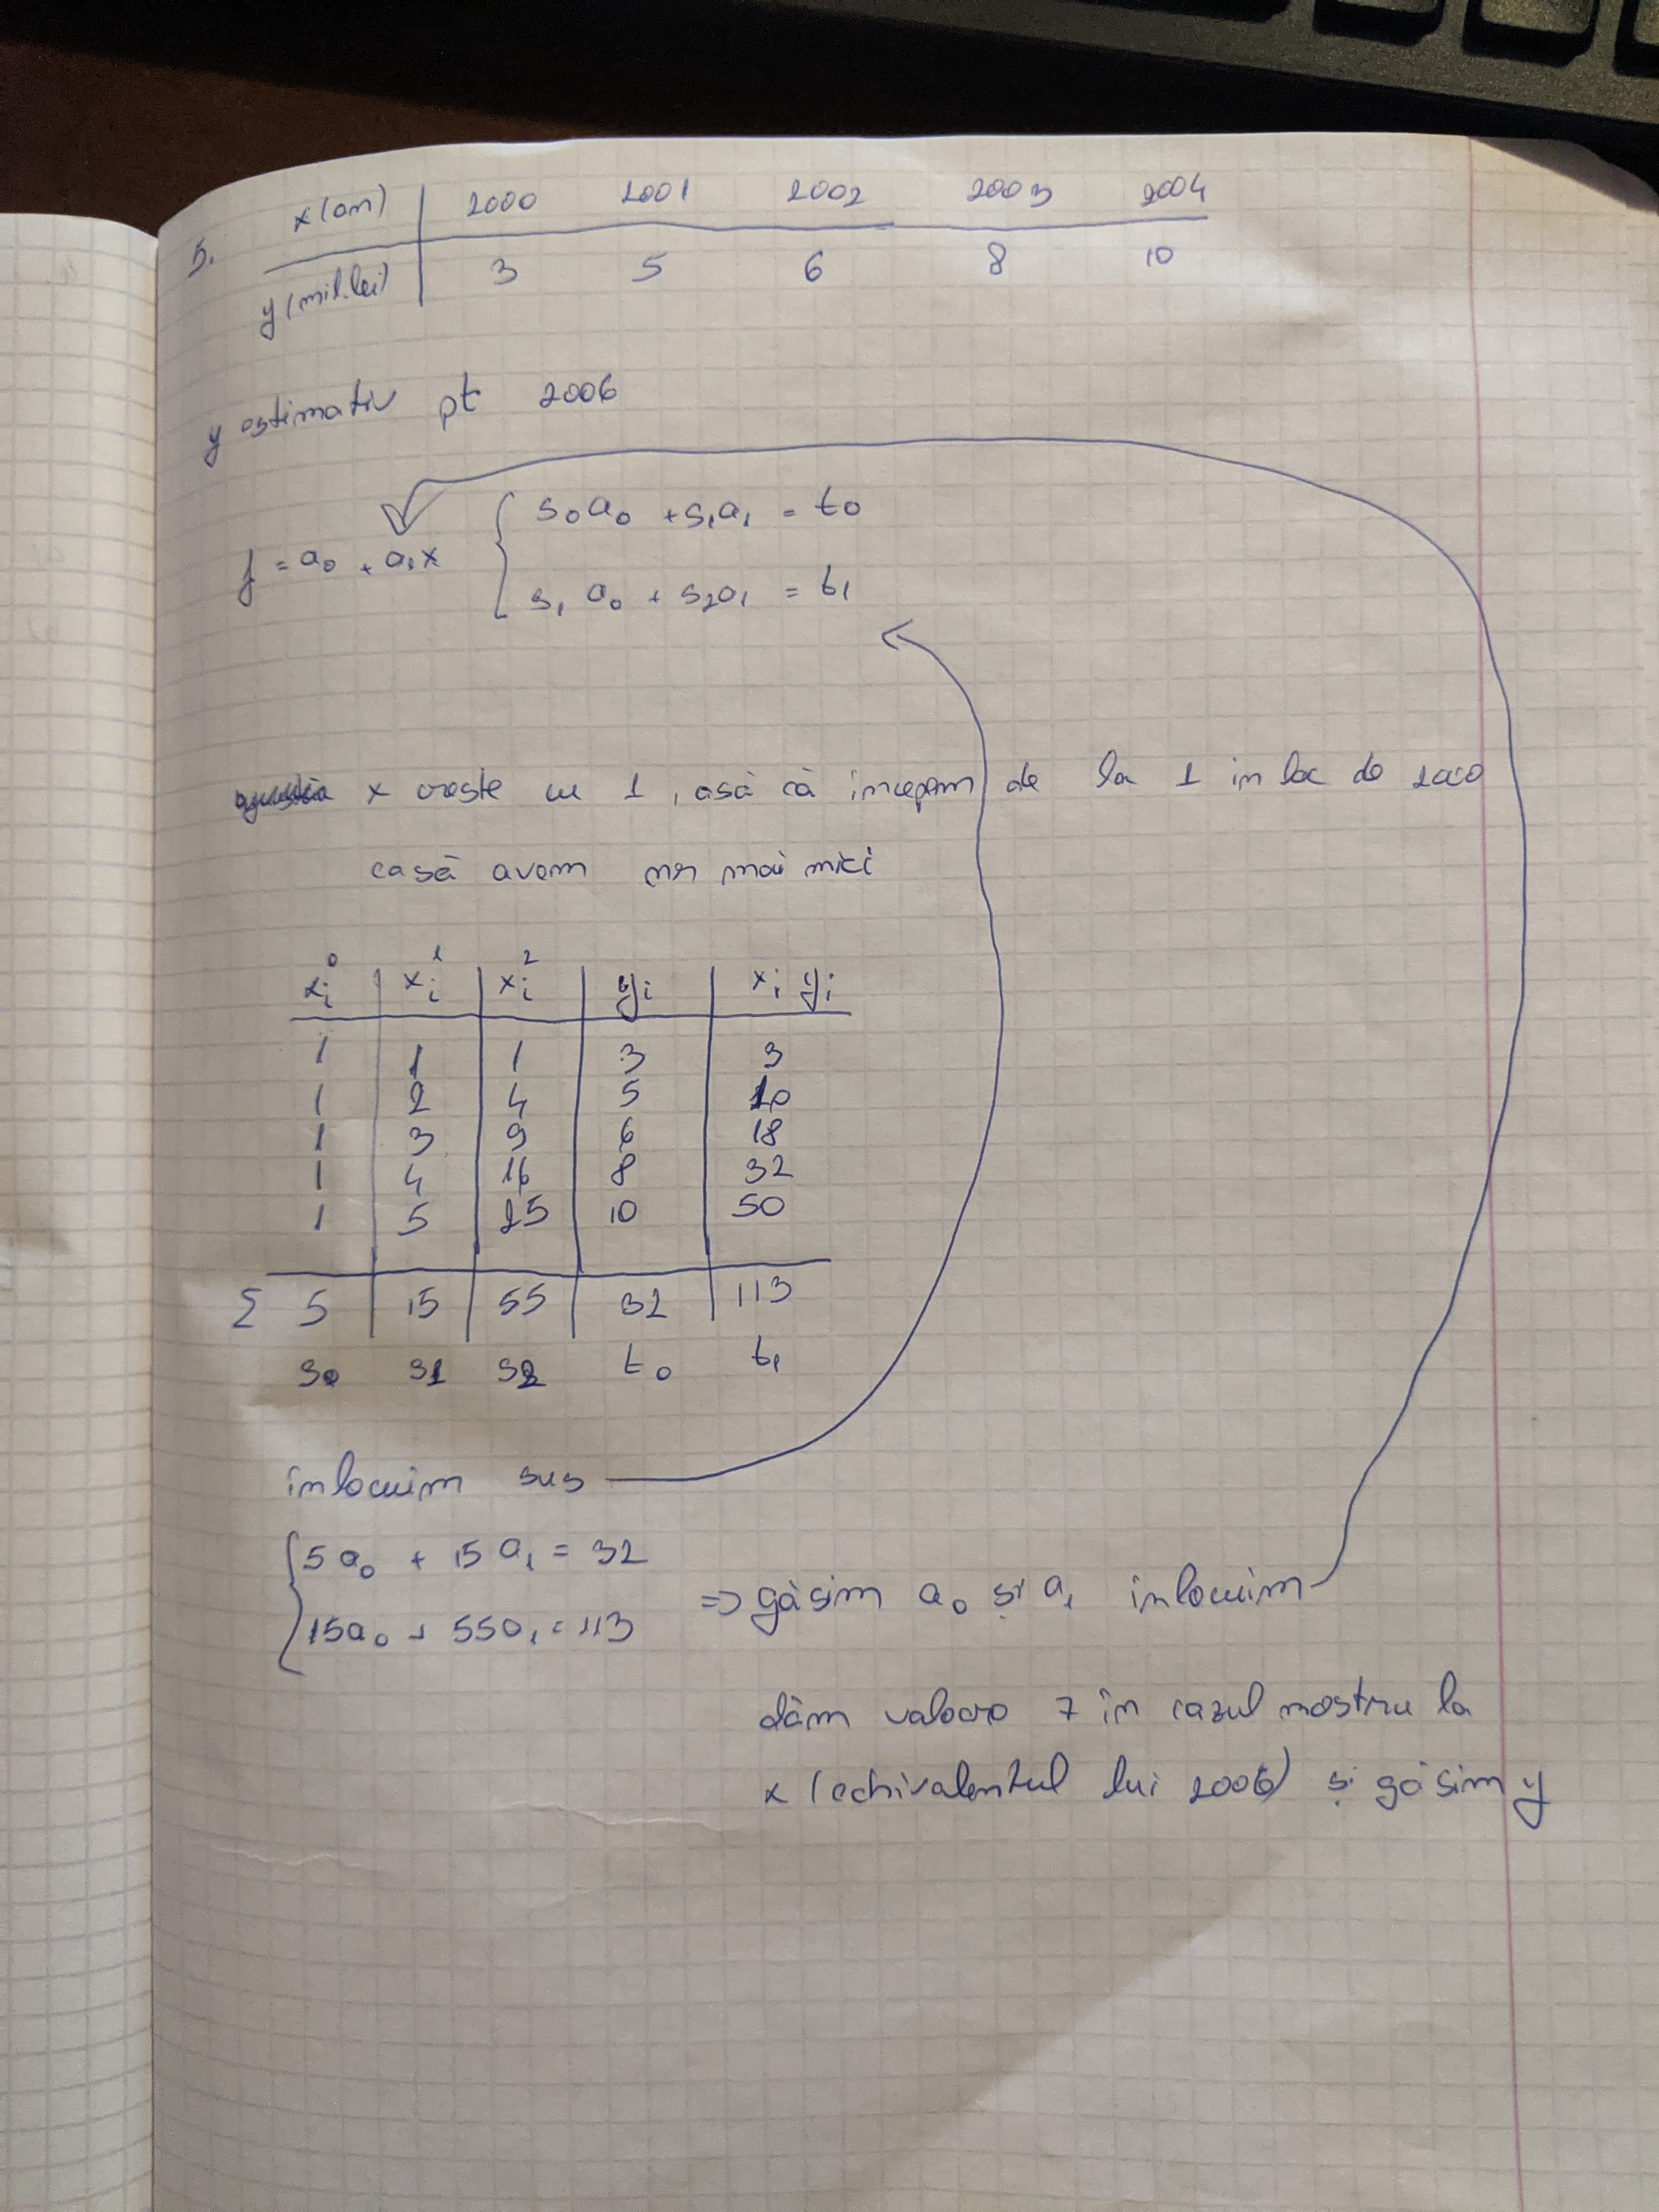 5.
x (an) | 2000 2001 2002 2003 2004
y (mil.lei) | 3 5 6 8 10
y estimativ pt 2006
f = a₀ + a₁x { s₀a₀ + s₁a₁ = t₀
s₁a₀ + s₂a₁ = t₁
x creste cu 1, asă că începem de la 1 in loc de 2000
casă avem nr mai mici
xᵢ⁰ | xᵢ¹ | xᵢ² | yᵢ | xᵢ yᵢ
1 | 1 | 1 | 3 | 3
1 | 2 | 4 | 5 | 10
1 | 3 | 9 | 6 | 18
1 | 4 | 16 | 8 | 32
1 | 5 | 25 | 10 | 50
Σ 5 | 15 | 55 | 32 | 113
s₀ s₁ s₂ t₀ t₁
înlocuim sus
{ 5a₀ + 15a₁ = 32
15a₀ + 55a₁ = 113
=> găsim a₀ și a₁ înlocuim
dăm valoare 7 în cazul nostru la
x (echivalentul lui 2006) și găsim y